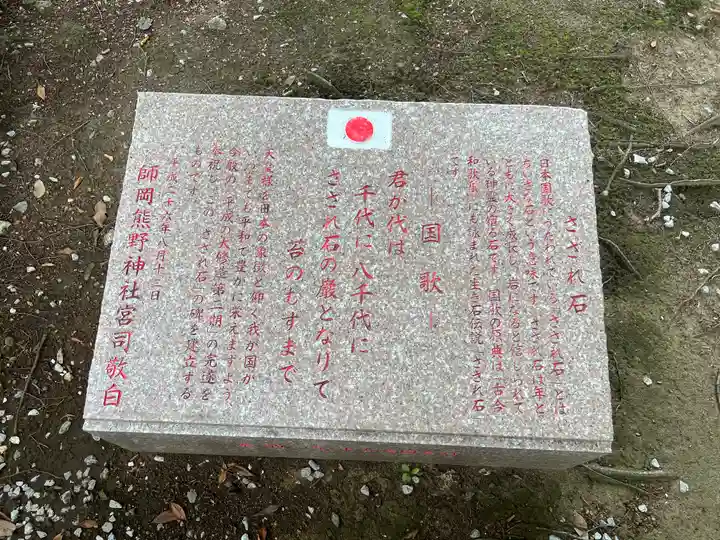 さざれ石
日本国歌にうたわれている「さざれ石」とは
ちいさな石という意味です。さざれ石は年と
ともに大きく成長し、岩になると信じられて
いる神霊の宿る石です。国歌の原典は「古今
和歌集」にも詠まれた生き石伝説「さざれ石」
です
―国歌―
君が代は
千代に八千代に
さざれ石の巌となりて
苔のむすまで
天皇様を日本の象徴と仰ぐ我が国が
いつまでも平和で豊かに栄えますよう
今般の「平成の大修造第二期」の完遂を
奉祝し、この「さざれ石」の碑を建立する
ものです。
平成二十六年八月十二日
師岡熊野神社宮司敬白